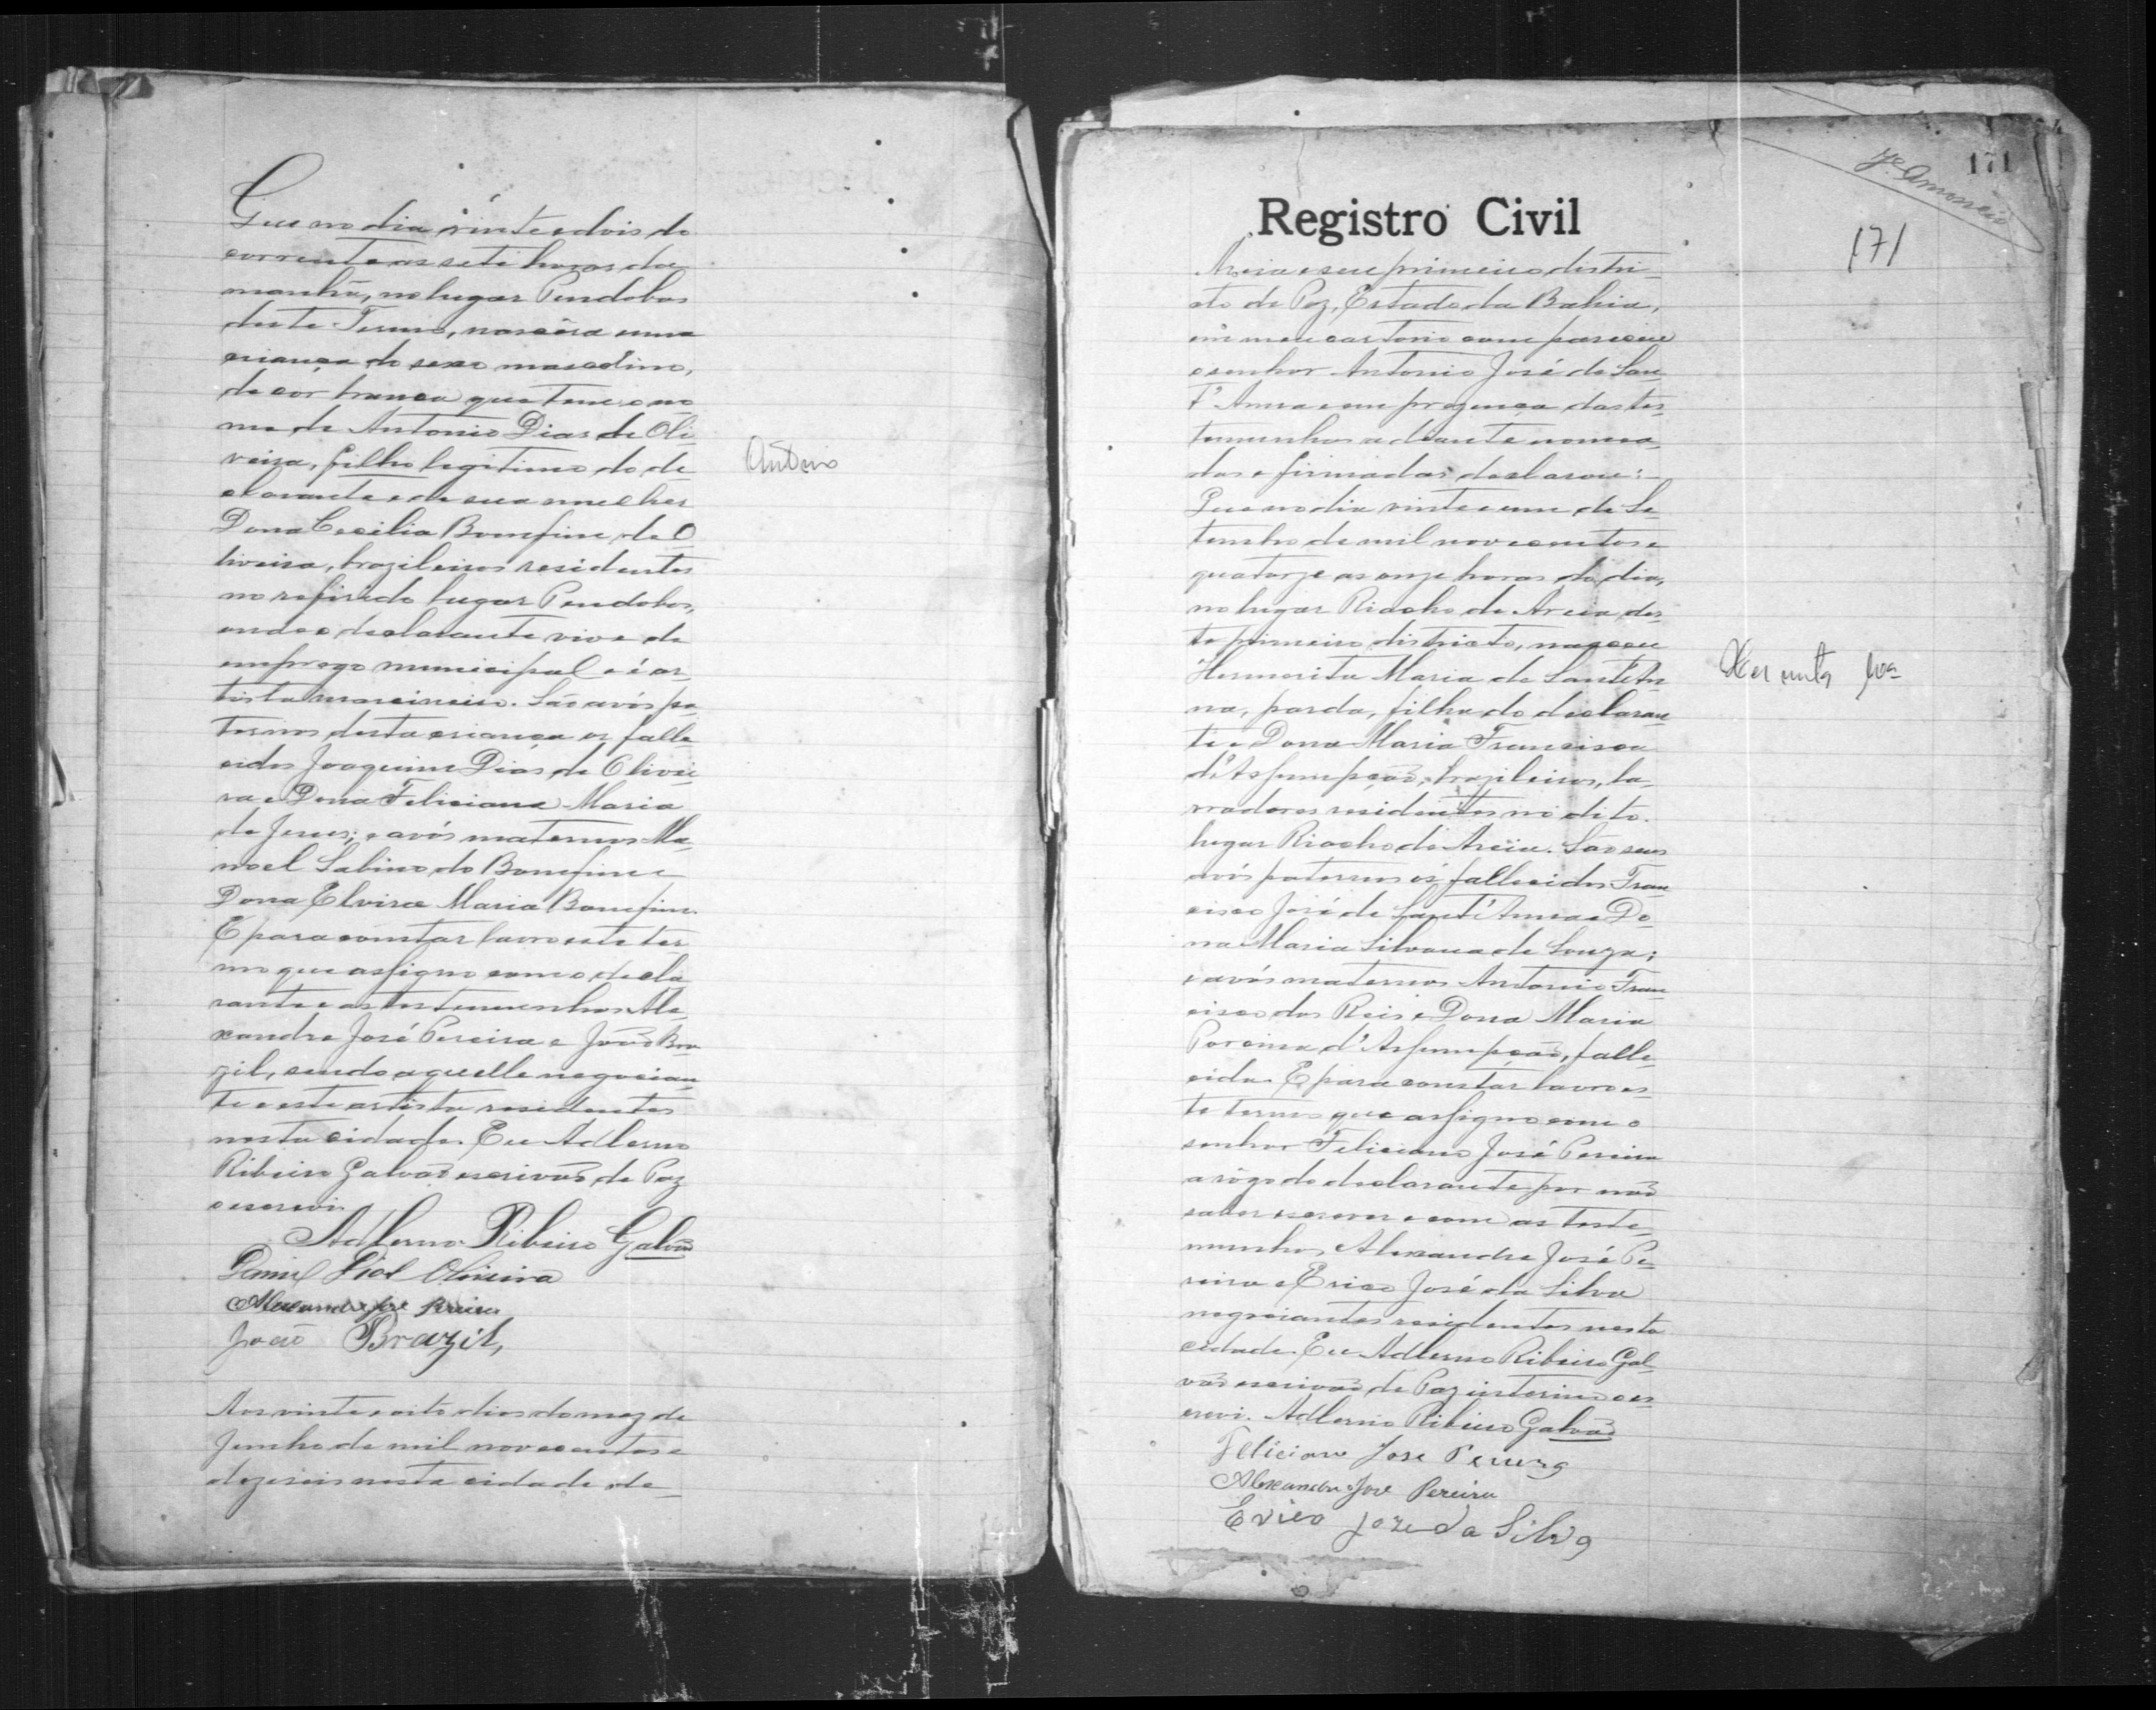 Que no dia vinte e dois do
corrente as sete horas da
manhã, no lugar Pindobas
deste Termo, nascêra uma
criança do sexo masculino,
de cor branca que tem o no
me de Antonio Dias de Oli
veira, filho legitimo do de
clarante e de sua mulher
Dona Cecilia Bomfim de O
liveira, brazileiros residentes
no referido lugar Pindobas,
onde o declarante vive de
emprego municipal e é ar
tista marcineiro. São avós pa
ternos desta criança os falle
cidos Joaquim Dias de Olivei
ra e Dona Feliciana Maria
de Jesus; e avós maternos Ma
noel Sabino do Bomfim e
Dona Elvira Maria Bomfim.
E para constar lavro este ter
mo que assigno com o decla
rante e as testemunhas Ale
xandre José Pereira e João Bra
zil, sendo aquelle negocian
te e este artista residentes
nesta cidade. Eu Adlerno
Ribeiro Galvão escrivão de Paz
o escrevi.
Adlerno Ribeiro Galvão
Oliveira
Alexandre José Pereira
João Brazil,
Aos vinte e oito dias do mez de
Junho de mil novecentos e
dezeseis nesta cidade de
Antonio
171
171
Registro Civil
Areia e seu primeiro distri
cto de Paz, Estado da Bahia,
em meu cartorio compareceu
o senhor Antonio José de San
t'Anna e em prezença das tes
temunhas adiante nomea
das e firmadas declarou:
Que no dia vinte e um de Se
tembro de mil novecentos e
quatorze as onze horas do dia,
no lugar Riacho de Areia des
te primeiro districto, nasceu
Hermerita Maria de Sant'An
na, parda, filha do declaran
te e Dona Maria Francisca
d'Assumpção, brazileiros, la
vradores residentes no dito
lugar Riacho de Areia. São seus
avós paternos os fallecidos Fran
cisco José de Sant'Anna e Do
na Maria Silvana de Souza;
e avós maternos Antonio Fran
cisco dos Reis e Dona Maria
d'Assumpção, falle
cida. E para constar lavro es
te termo que assigno com o
senhor Feliciano José Pereira
a rôgo do declarante por não
saber escrever e com as teste
munhas Alexandre José Pe
reira e Erico José da Silva
negociantes residentes nesta
cidade. Eu Adlerno Ribeiro Gal
vão escrivão de Paz interino o es
crevi. Adlerno Ribeiro Galvão
Feliciano Jose Pereira
Alexandre Jose Pereira
Erico Joze da Silva